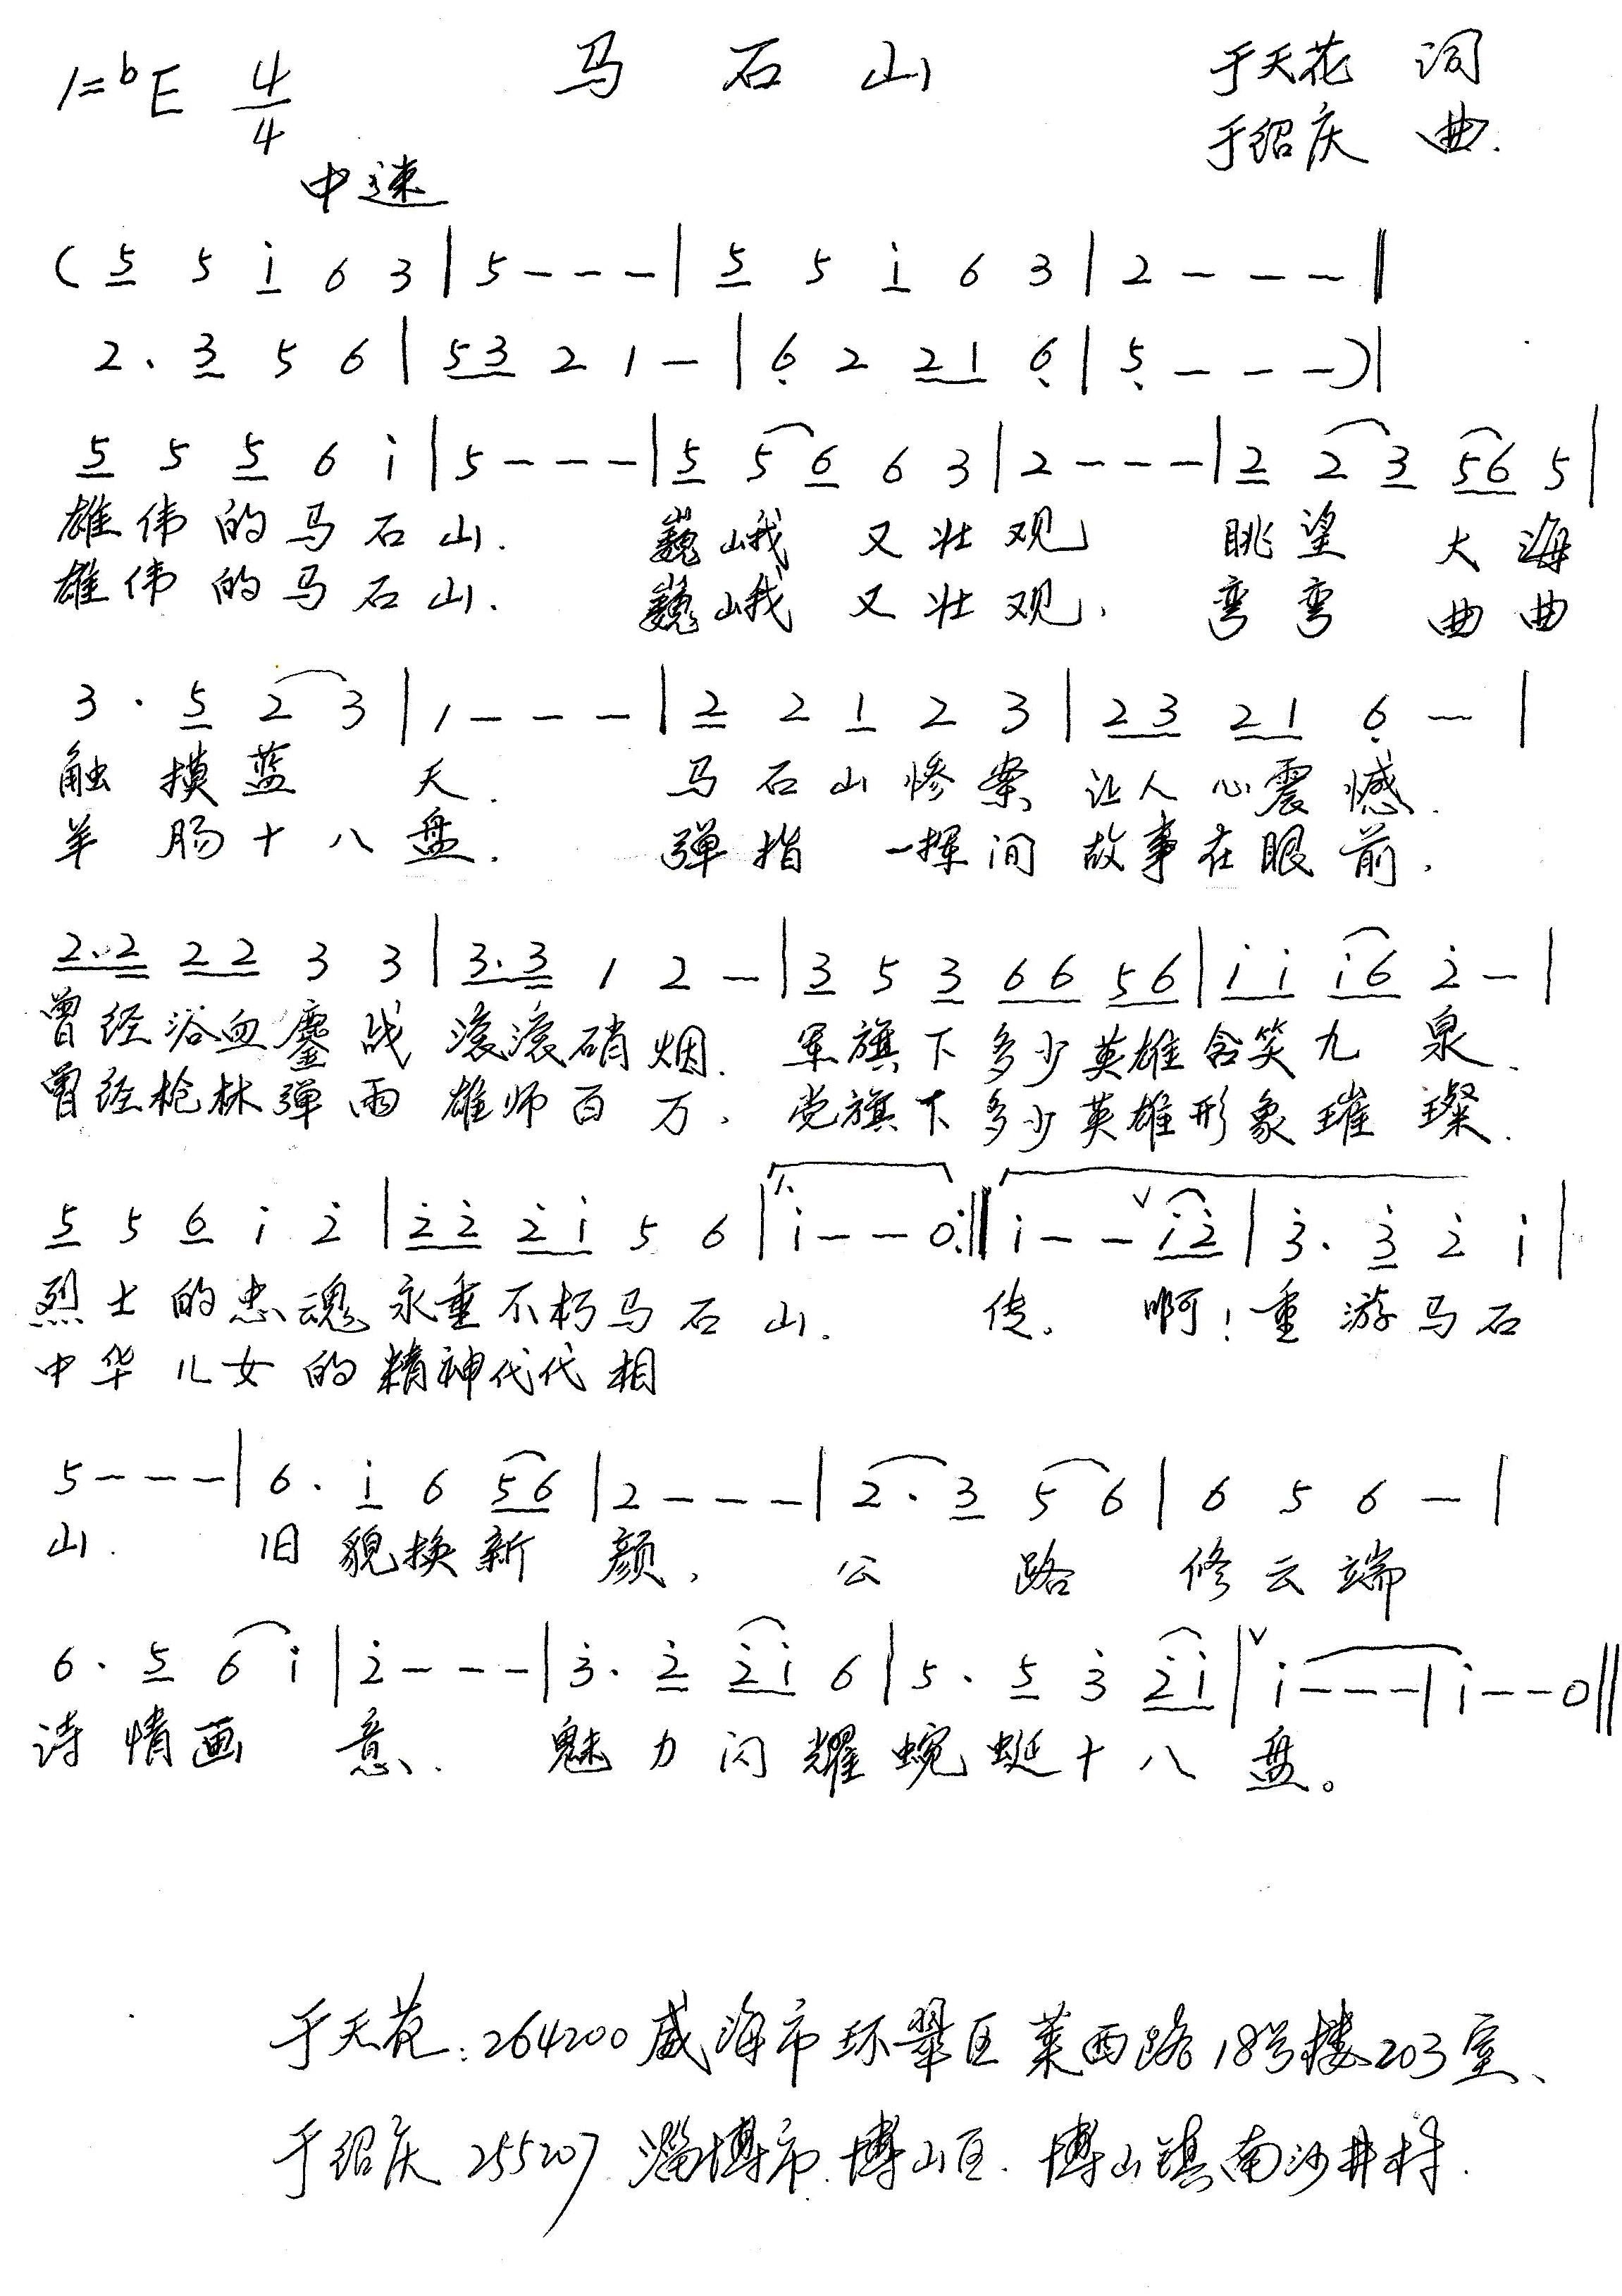 1=bE 4/4 马石山 于天花 词
于绍庆 曲.
中速
( 5 5 i 6 3 | 5 - - - | 5 5 i 6 3 | 2 - - - ‖
2 . 3 5 6 | 5 3 2 1 - | 6 2 2 1 6 | 5 - - - ) |
5 5 5 6 i | 5 - - - | 5 5 6 6 3 | 2 - - - | 2 2 3 5 6 5 |
雄伟的马石山. 巍峨又壮观 眺望大海
雄伟的马石山. 巍峨又壮观. 弯弯曲曲
3 . 5 2 3 | 1 - - - | 2 2 1 2 3 | 2 3 2 1 6 - |
触摸蓝天. 马石山惨案 让人心震憾.
羊肠十八盘. 弹指一挥间 故事在眼前.
2 . 2 2 2 3 3 | 3 . 3 1 2 - | 3 5 3 6 6 5 6 | i i i 6 2 - |
曾经浴血鏖战 滚滚硝烟. 军旗下多少英雄含笑九泉.
曾经枪林弹雨 雄师百万. 党旗下多少英雄形象璀璨.
5 5 6 i 2 | 2 2 2 i 5 6 | 1. i - - 0 :‖ i - - ∨ i 2 | 3 . 3 2 i |
烈士的忠魂永垂不朽马石山. 传. 啊!重游马石
中华儿女的精神代代相
5 - - - | 6 . i 6 5 6 | 2 - - - | 2 . 3 5 6 | 6 5 6 - |
山. 旧貌换新颜. 公路修云端
6 . 5 6 i | 2 - - - | 3 . 2 2 i 6 | 5 . 5 3 2 i | ∨ i - - - | i - - 0 ‖
诗情画意. 魅力闪耀蜿蜒十八盘。
于天花:264200威海市环翠区莱西路18号楼203室、
于绍庆 255207 淄博市.博山区.博山镇南沙井村.